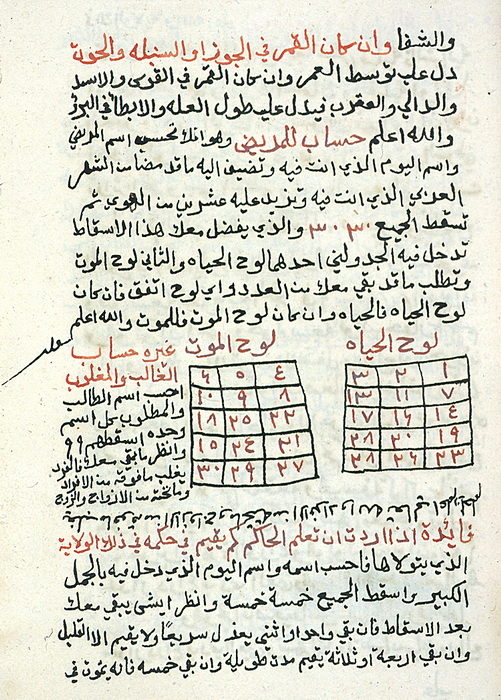 والشفا وان كان القمر في الجوزا والسنبله والحوت
دل على توسط العمر وان كان القمر في القوس والاسد
والدالي والعقرب فيدل على طول العله والابطا في البرئ
والله اعلم حساب للمريض وهو انك تحسب اسم المريض
واسم اليوم الذي انت فيه وتضيف اليه ما قد مضا من الشهر
العربي الذي انت فيه وتزيد عليه عشرين من الهوي ثم
تسقط الجميع ٣٠ ٣٠ والذي يفضل معك هذا الاسقاط
تدخل فيه الجدولين احدهما لوح الحياه والثاني لوح الموت
وتطلب ما قد بقي معك من العدد واي لوح اتفق فان كان
لوح الحياه فالحياه وان كان لوح الموت فللموت والله اعلم
لوح الحياه
١ ٢ ٣
٧ ١١ ١٣
١٤ ١٦ ١٧
١٩ ٢٠ ٢٨
٢٣ ٢٦ ٢٨
لوح الموت
٤ ٥ ٦
٨ ٩ ١٠
٢٢ ٢٥ ١٨
٢١ ٢٤ ١٥
٢٧ ٢٩ ٣٠
غيره حساب
الغالب والمغلوب
احسب اسم الطالب
والمطلوب كل اسم
وحده اسقطهم ٩ ٩
وانظر ما بقي معك فالفرد
يغلب ما فوقه من الافراد
وما تحته من الازواج والزوج
فايدة اذا اردت ان تعلم الحاكم كم يقيم في حكمه في ذلك الولاية
الذي يتولاها فاحسب اسمه واسم اليوم الذي دخل فيه بالجمل
الكبير واسقط الجميع خمسة خمسة وانظر ايش يبقي معك
بعد الاسقاط فان بقي واحد او اثنين يعزل سريعا ولا يقيم الا القليل
وان بقي اربعة او ثلاثة يقيم مدة طويلة وان بقي خمسه فانه يموت في